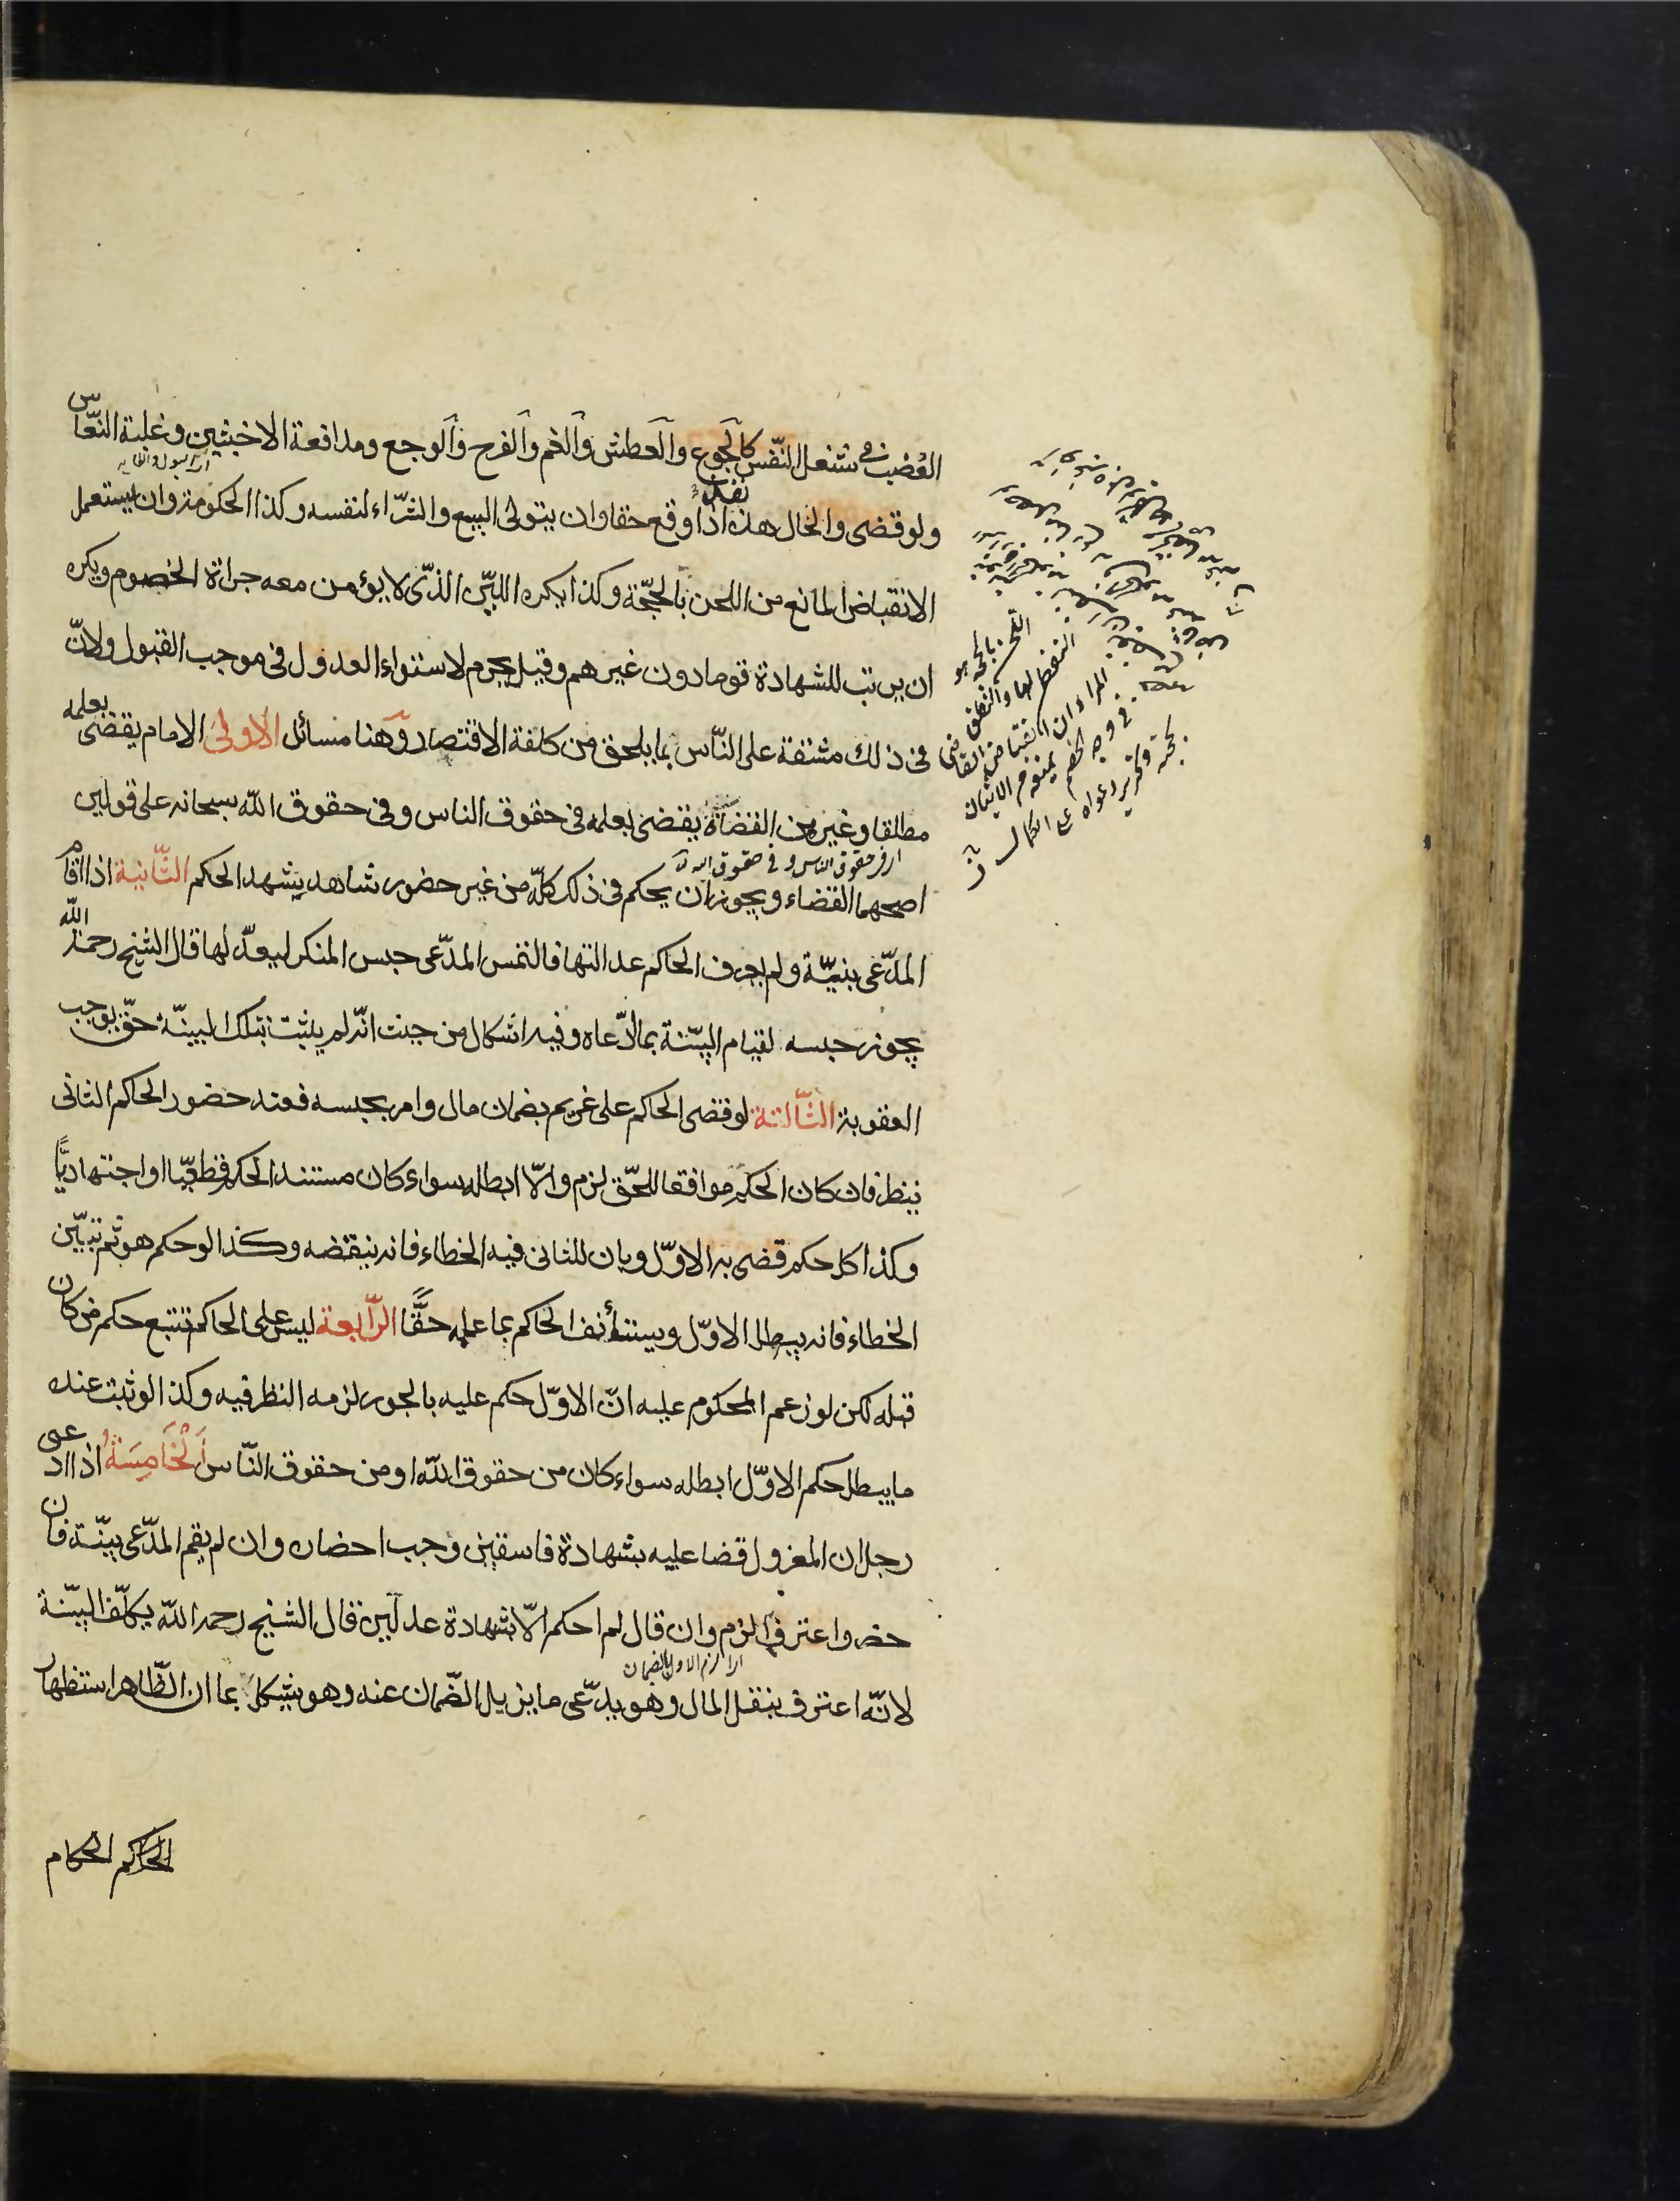 الغضب في شغل النّفس كالجوع والعطش والغم والفرح والوجع ومدافعة الاخبثين وغلبة النّعاس
ولو قضى والحال هذه نفذ اذا وقع حقا وان يتولى البيع والشّراء لنفسه وكذا الحكومة وان يستعمل
الانقباض المانع من اللحن بالحجّة وكذا يكره اللين الذّى لا يؤمن معه جرأة الخصوم ويكره
ان يرتب للشهادة قوما دون غيرهم وقيل يحرم لاستواء العدول فى موجب القبول ولانّ
فى ذلك مشقة على النّاس بما يلحق من كلفة الاقتصار وهنا مسائل الاولى الامام يقضى بعلمه
مطلقا وغيره من القضاة يقضى بعلمه فى حقوق الناس وفى حقوق الله سبحانه على قولين
اى فى حقوق الناس و فى حقوق الله
اصحهما القضاء ويجوز ان يحكم فى ذلك كلّه من غير حضور شاهد يشهد الحكم الثّانية اذا اقام
المدّعى بنيّة ولم يعرف الحاكم عدالتها فالتمس المدّعى حبس المنكر ليعدّلها قال الشيخ رحمه الله
يجوز حبسه لقيام البيّنة بما ادّعاه وفيه اشكال من حيث انّه لم يثبت بتلك البينّة حقّ يوجب
العقوبة الثّالثة لو قضى الحاكم على غريم بضمان مال وامر بحبسه فعند حضور الحاكم الثانى
ينظر فان كان الحكم موافقا للحّق لزم والّا ابطله سواء كان مستند الحكم قطعيّا او اجتهاديّا
وكذا كل حكم قضى به الاوّل وبان للثانى فيه الخطاء فانه ينقضه وكذا لو حكم هو ثم تبيّن
الخطاء فانه يبطل الاوّل ويستأنف الحاكم بما علمه حقًّا الرّابعة ليس على الحاكم تتبع حكم من كان
قبله لكن لو زعم المحكوم عليه انّ الاوّل حكم عليه بالجور لزمه النظر فيه وكذا لو ثبت عنده
ما يبطل حكم الاوّل ابطله سواء كان من حقوق الله او من حقوق النّاس الخَامِسَةُ اذا ادعى
رجل ان المعزول قضا عليه بشهادة فاسقين وجب احضاره وان لم يقم المدّعى بيّنة فان
حضر واعترف الزم وان قال لم احكم الّا بشهادة عدلين قال الشيخ رحمه الله يكلّف البيّنة
لانّه اعترف بنقل المال وهو يدّعى ما يزيل الضّمان عنه وهو يشكل بما ان الظّاهر استظهار
الحكام
اللحن بالحجة هو
التفطن لها والنطق
المراد ان انقباض القاضى
فى وجه الخصم يمنعه من الاتيان
بحجته وتحرير دعواه على الكمال